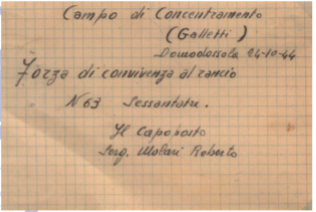 Campo di Concentramento
(Galletti)
Domodossola 24-10-44
Forza di convivenza al rancio
N 63 Sessantatre.
Il Capoposto
Serg. Molari Roberto